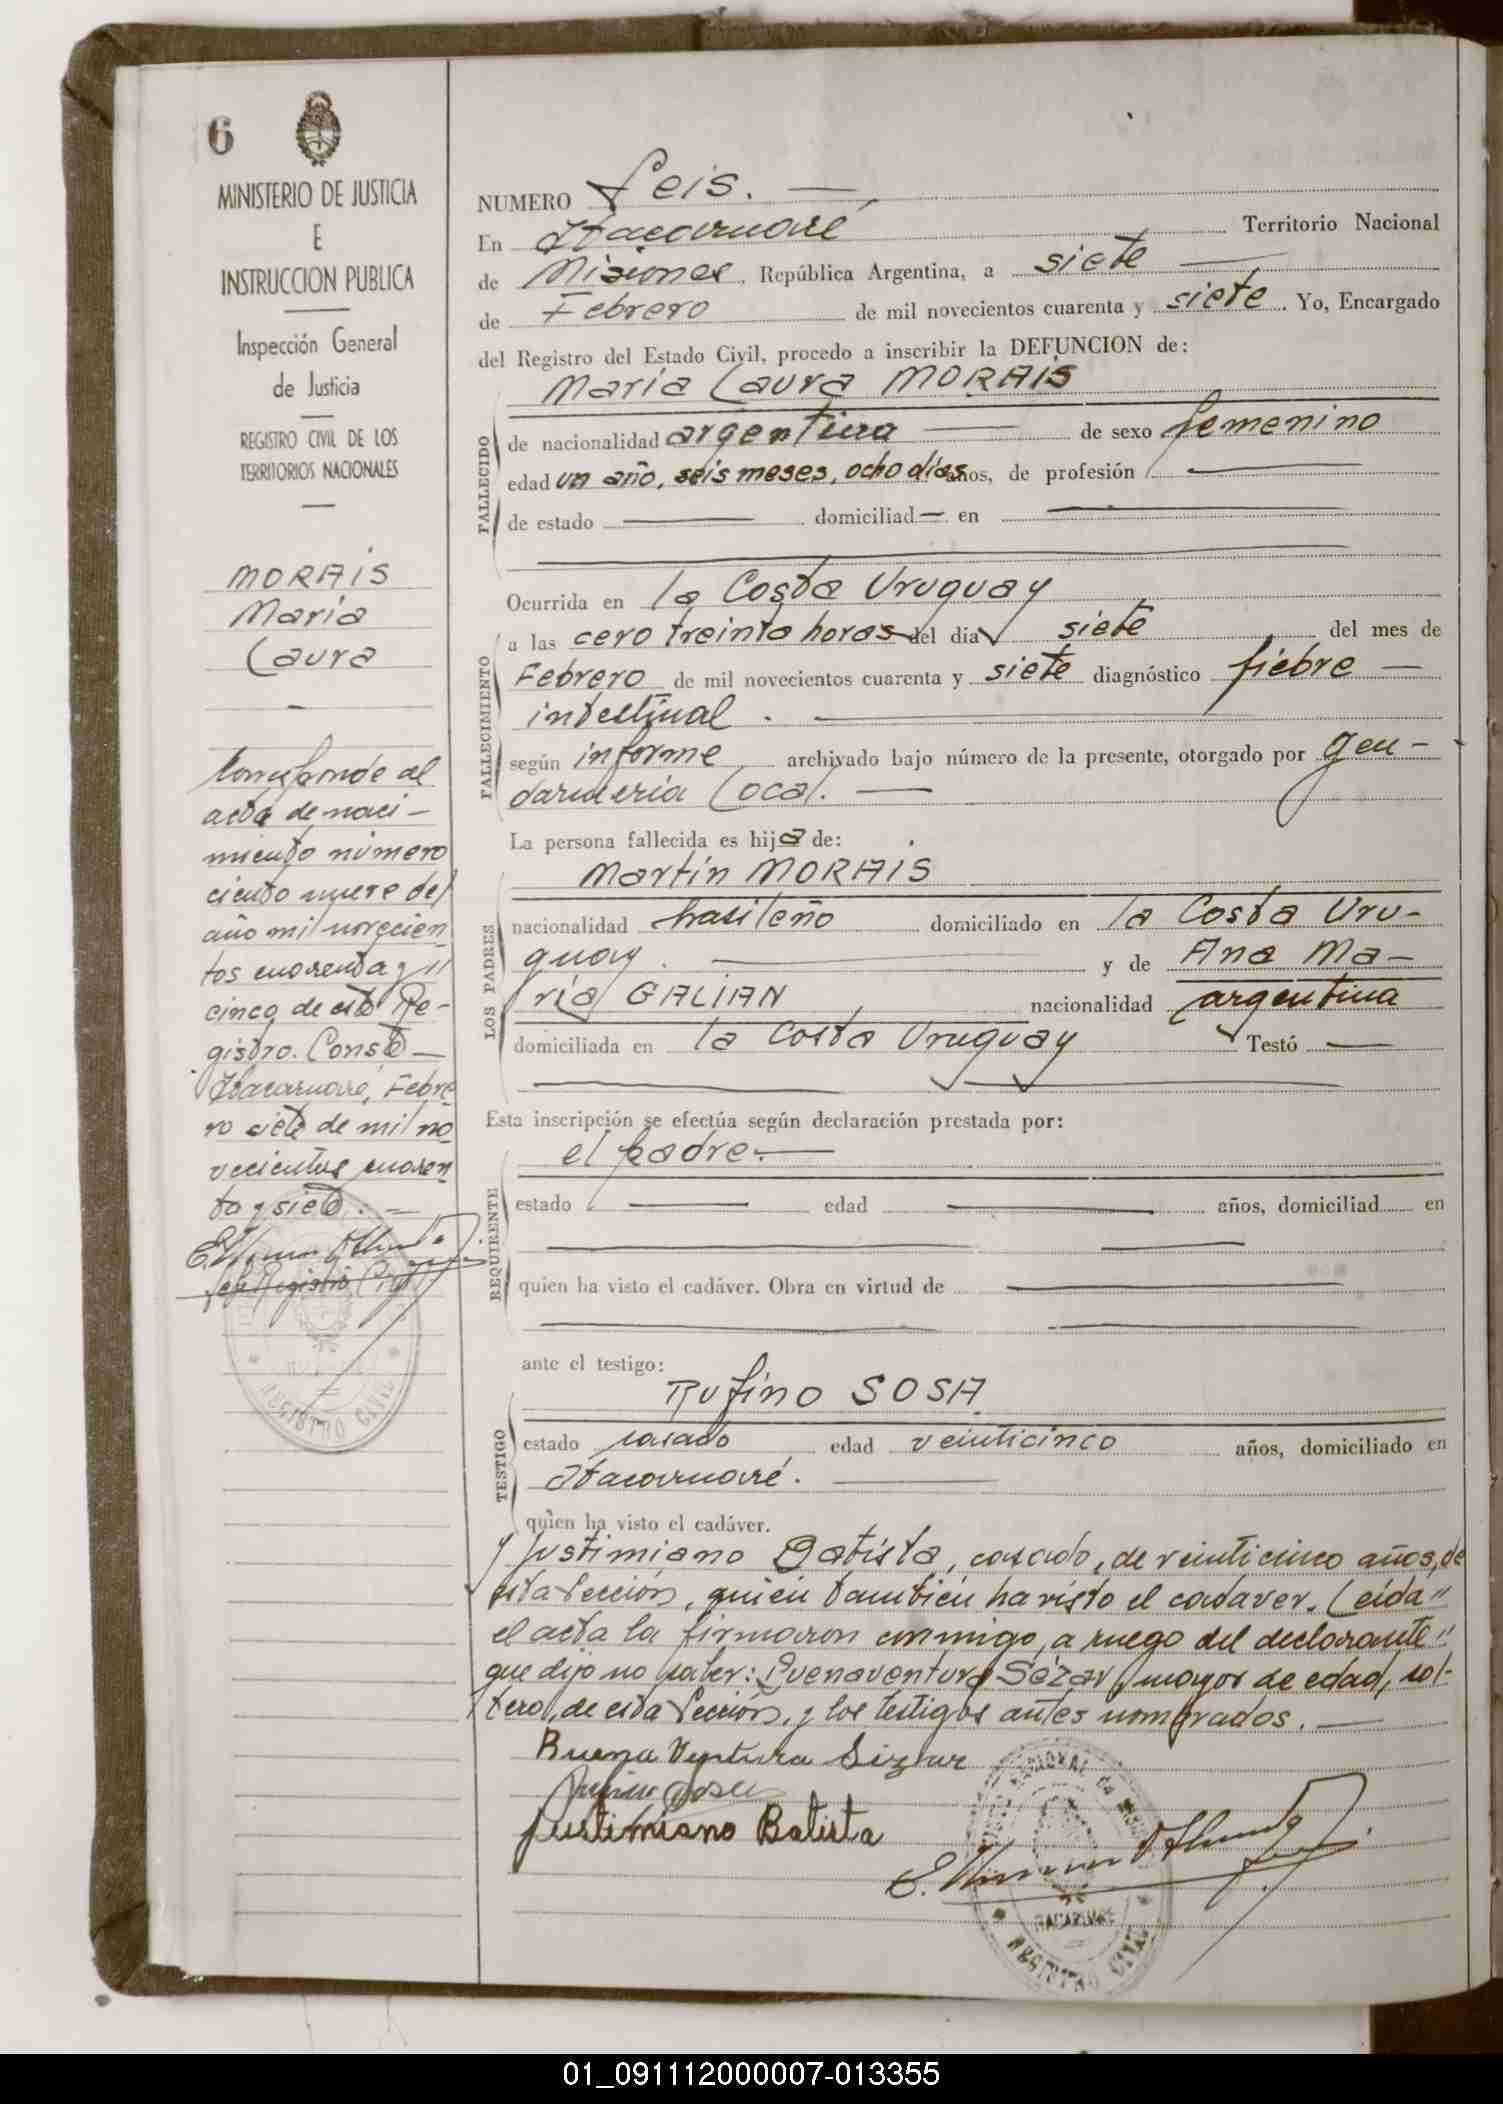 6
MINISTERIO DE JUSTICIA
E
INSTRUCCION PUBLICA
Inspección General
de Justicia
REGISTRO CIVIL DE LOS
TERRITORIOS NACIONALES
MORAIS
Maria
Laura
Corresponde al
acta de naci-
miento número
ciento nueve del
año mil novecien
tos cuarenta y "
cinco de este Re-
gistro. Conste—
Itacaruaré, Febre
ro siete de mil no
vecientos cuaren
ta y siete. —
Jefe Registro Civil
REGISTRO CIVIL
NUMERO Seis. —
En Itacaruaré Territorio Nacional
de Misiones, República Argentina, a siete —
de Febrero de mil novecientos cuarenta y siete. Yo, Encargado
del Registro del Estado Civil, procedo a inscribir la DEFUNCION de:
María Laura MORAIS
FALLECIDO
de nacionalidad argentina — de sexo femenino
edad un año, seis meses, ocho días años, de profesión —
de estado — domiciliad— en —
Ocurrida en la Costa Uruguay
FALLECIMIENTO
a las cero treinta horas del dia siete del mes de
Febrero de mil novecientos cuarenta y siete diagnóstico fiebre —
intestinal . —
según informe archivado bajo número de la presente, otorgado por gen-
darmería local. —
La persona fallecida es hija de:
Martín MORAIS
LOS PADRES
nacionalidad brasileño domiciliado en la Costa Uru-
guay . — y de Ana Ma-
ría GALIAN nacionalidad argentina
domiciliada en la Costa Uruguay Testó —
Esta inscripción se efectúa según declaración prestada por:
el padre.—
REQUIRENTE
estado — edad — años, domiciliad en
quien ha visto el cadáver. Obra en virtud de —
ante el testigo:
Rufino SOSA
TESTIGO
estado casado edad veinticinco años, domiciliado en
Itacaruaré. —
quien ha visto el cadáver.
y Justimiano Batista, casado, de veinticinco años, de
esta Sección, quien también ha visto el cadaver. Leída "
el acta la firmaron conmigo, a ruego del declarante "
que dijo no saber: Buenaventura Sézar, mayor de edad, sol-
tero, de esta Sección, y los testigos antes nombrados. —
Buena Ventura Sizar
Rufino Sosa
Justimiano Batista
ITACARUARE
REGISTRO CIVIL
01_091112000007-013355